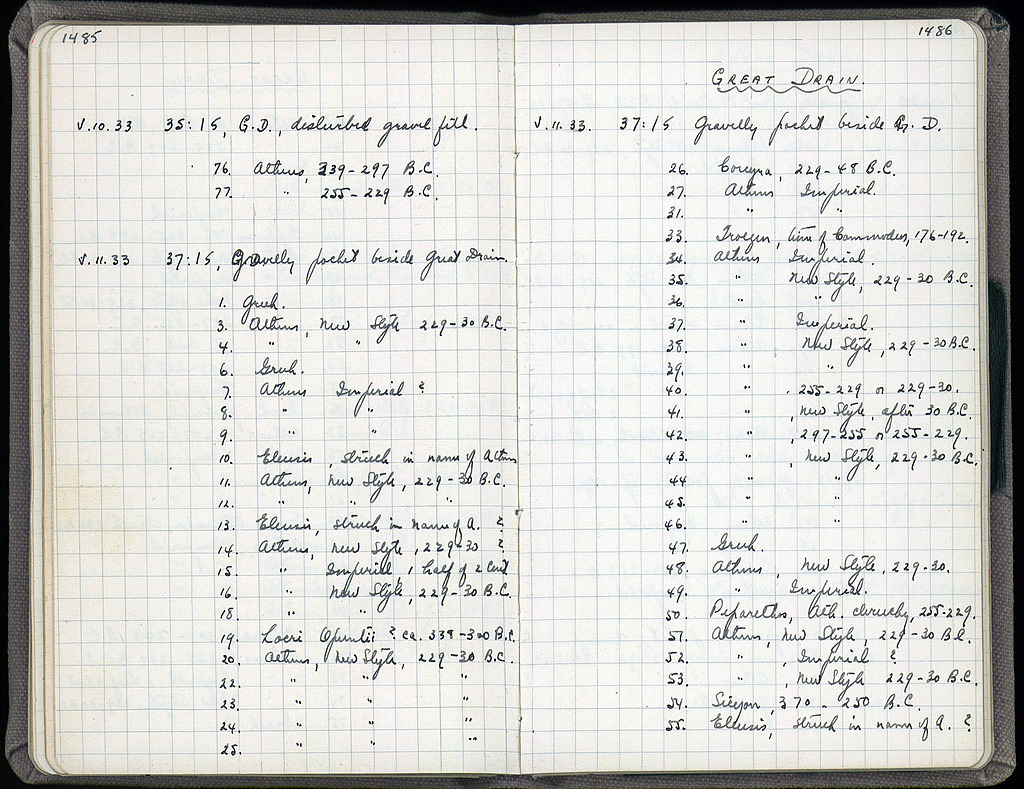 1485
V.10.33 35:15, G.D., disturbed gravel fill.
76. Athens, 339-297 B.C.
77. " 255-229 B.C.
V.11.33 37:15, Gravelly pocket beside Great Drain.
1. Greek.
3. Athens, New Style 229-30 B.C.
4. " "
6. Greek.
7. Athens Imperial ?
8. " "
9. " "
10. Eleusis, struck in name of Athens
11. Athens, New Style, 229-30 B.C.
12. " " "
13. Eleusis, struck in name of A. ?
14. Athens, New Style, 229-30 ?
15. " Imperial, 1 half of 2 cent
16. " New Style, 229-30 B.C.
18. " "
19. Locri Opuntii ? ca. 338-300 B.C.
20. Athens, New Style, 229-30 B.C.
22. " " "
23. " " "
24. " " "
25. " " "
1486
GREAT DRAIN.
V.11.33. 37:15 Gravelly pocket beside G. D.
26. Corcyra, 229-48 B.C.
27. Athens Imperial.
31. " "
33. Troezen, time of Commodus, 176-192.
34. Athens Imperial.
35. " New Style, 229-30 B.C.
36. " "
37. " Imperial.
38. " New Style, 229-30 B.C.
39. " "
40. " , 255-229 or 229-30.
41. " , New Style, after 30 B.C.
42. " , 297-255 or 255-229.
43. " , New Style, 229-30 B.C.
44 " "
45. " "
46. " "
47. Greek.
48. Athens, New Style, 229-30.
49. " Imperial.
50. Peparethos, Ath. cleruchy, 255-229.
51. Athens, New Style, 229-30 B.C.
52. " , Imperial ?
53. " , New Style 229-30 B.C.
54. Sicyon, 370-250 B.C.
55. Eleusis, struck in name of A. ?